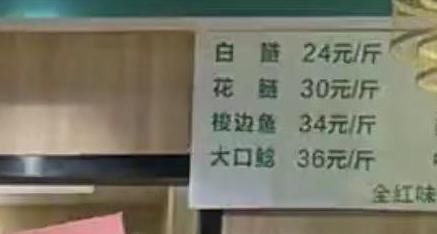 白 鲢 24元/斤
花 鲢 30元/斤
梭边鱼 34元/斤
大口鲶 36元/斤
全红味